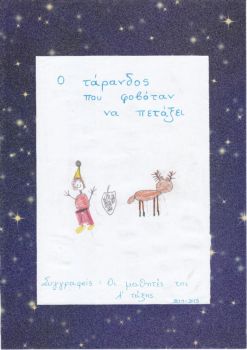 Ο τάρανδος
που φοβόταν
να πετάξει
Συγγραφείς: Οι μαθητές της
Α' τάξης